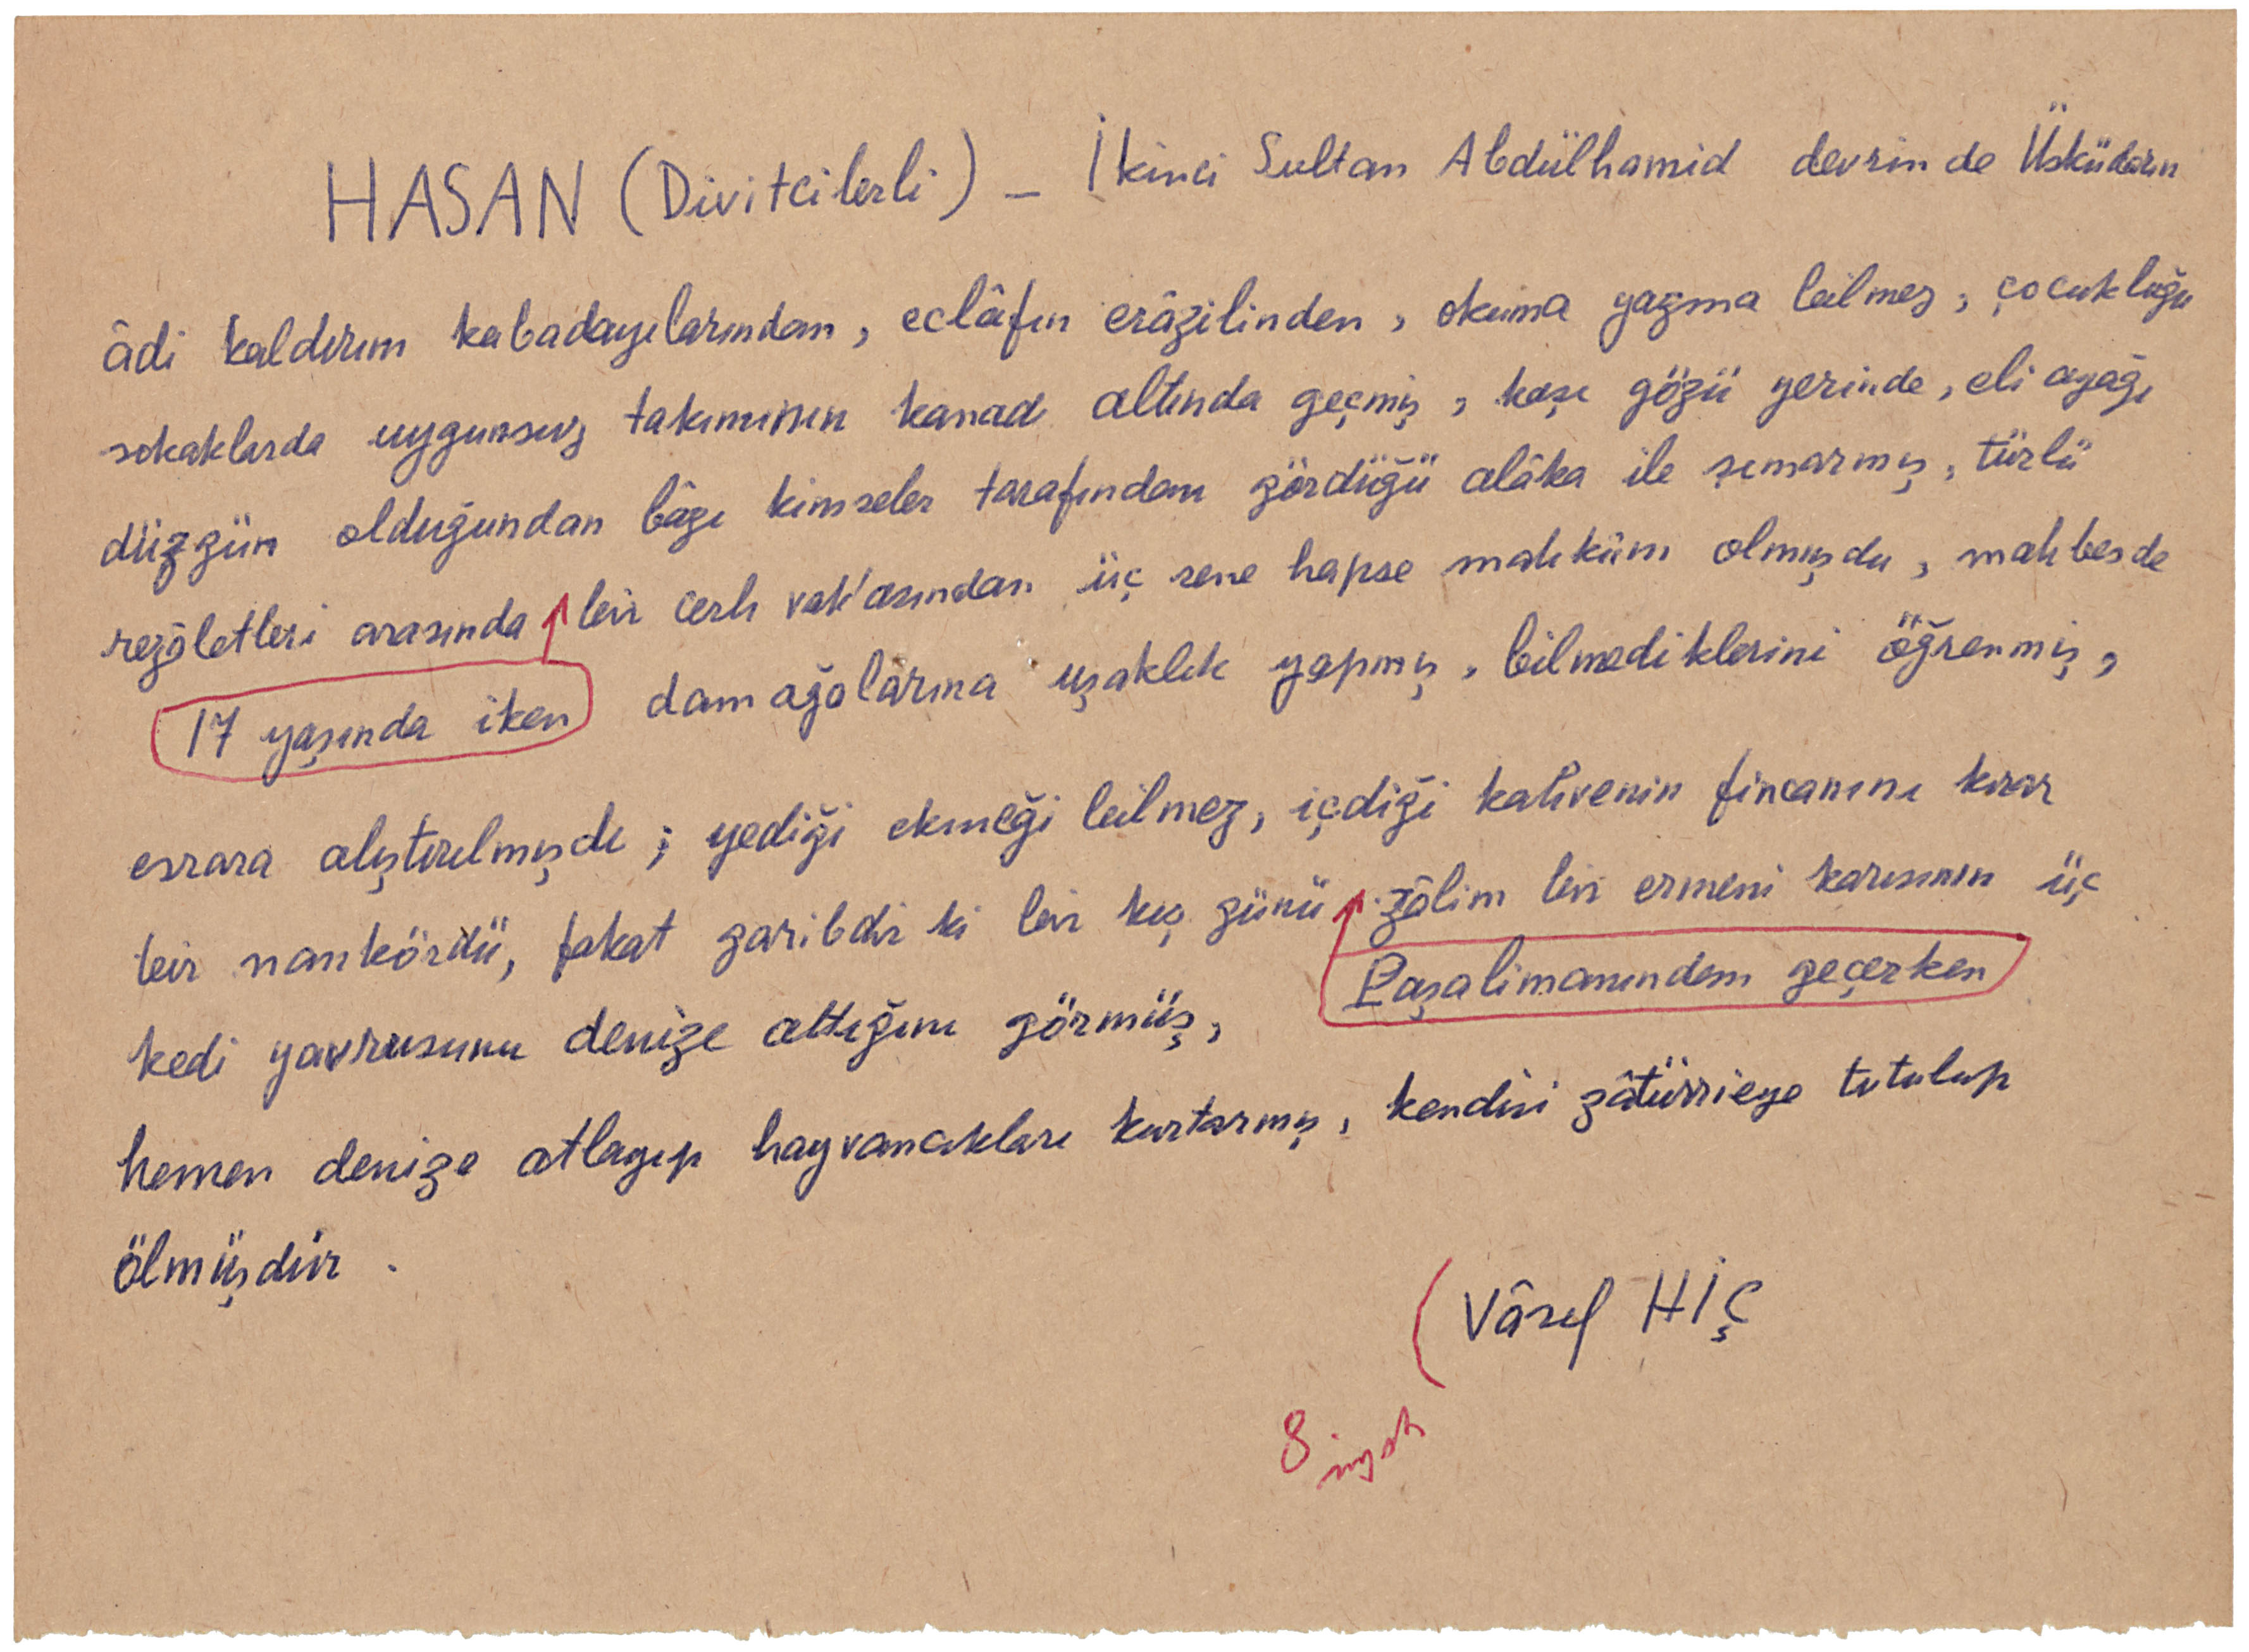 HASAN (Divitcilerli) — İkinci Sultan Abdülhamid devrinde Üsküdarın
âdi kaldırım kabadayılarından, eclâfın erâzilinden, okuma yazma bilmez, çocukluğu
sokaklarda uygunsuz takımının kanadı altında geçmiş, kaşı gözü yerinde, eli ayağı
düzgün olduğundan bâzı kimseler tarafından gördüğü alâka ile şımarmış, türlü
rezâletleri arasında bir cerh vak'asından üç sene hapse mahkûm olmuşdu, mahbesde
17 yaşında iken damağalarına uşaklık yapmış, bilmediklerini öğrenmiş,
esrara alıştırılmışdı; yediği ekmeği bilmez, içdiği kahvenin fincanını kırar
bir nankördü, fakat garibdir ki bir kış günü zâlim bir ermeni karısının üç
Paşalimanından geçerken
kedi yavrusunu denize attığını görmüş,
hemen denize atlayıp hayvancıkları kurtarmış, kendisi zâtürrieye tutulup
ölmüşdür.
(Vâsıf HİÇ
8